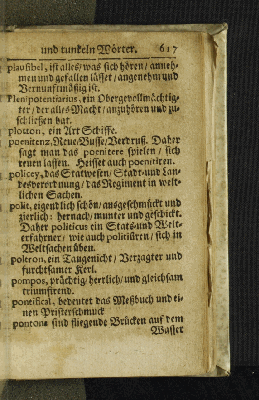 und tunkeln Wörter. 617
plausibel, ist alles/ was sich hören/ anneh-
men und gefallen lässet/ angenehm und
Vernunftmäsig ist.
Plenipotentiarius, ein Obergevollmächtig-
ter/ der alles Macht/ anzuhören und zu-
schließen hat.
plotton, ein Art Schiffe.
poenitenz, Reue/ Busse/ Verdruß. Daher
sagt man das poenitere spielen/ sich
reuen lassen. Heisset auch poenitiren.
policey, das Statwesen/ Stadt- und Lan-
desverordnung/ das Regiment in welt-
lichen Sachen.
polit, eigendlich schön/ ausgeschmückt und
zierlich: hernach/ munter und geschickt.
Daher politicus ein Stats- und Welt-
erfahrner/ wie auch politisiren/ sich in
Weltsachen üben.
poltron, ein Taugenicht/ Verzagter und
furchtsamer Kerl.
pompos, prächtig/ herrlich/ und gleichsam
triumfirend.
pontifical, bedeutet das Meßbuch und ei-
nen Pristerschmuck
pontons sind fliegende Brücken auf dem
Wasser